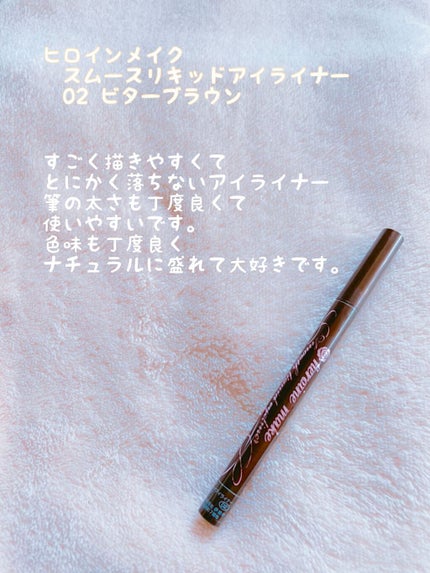 ヒロインメイク
スムースリキッドアイライナー
02 ビターブラウン
すごく描きやすくて
とにかく落ちないアイライナー
筆の太さも丁度良くて
使いやすいです。
色味も丁度良く
ナチュラルに盛れて大好きです。
heroine make
Smooth liquid eyeliner